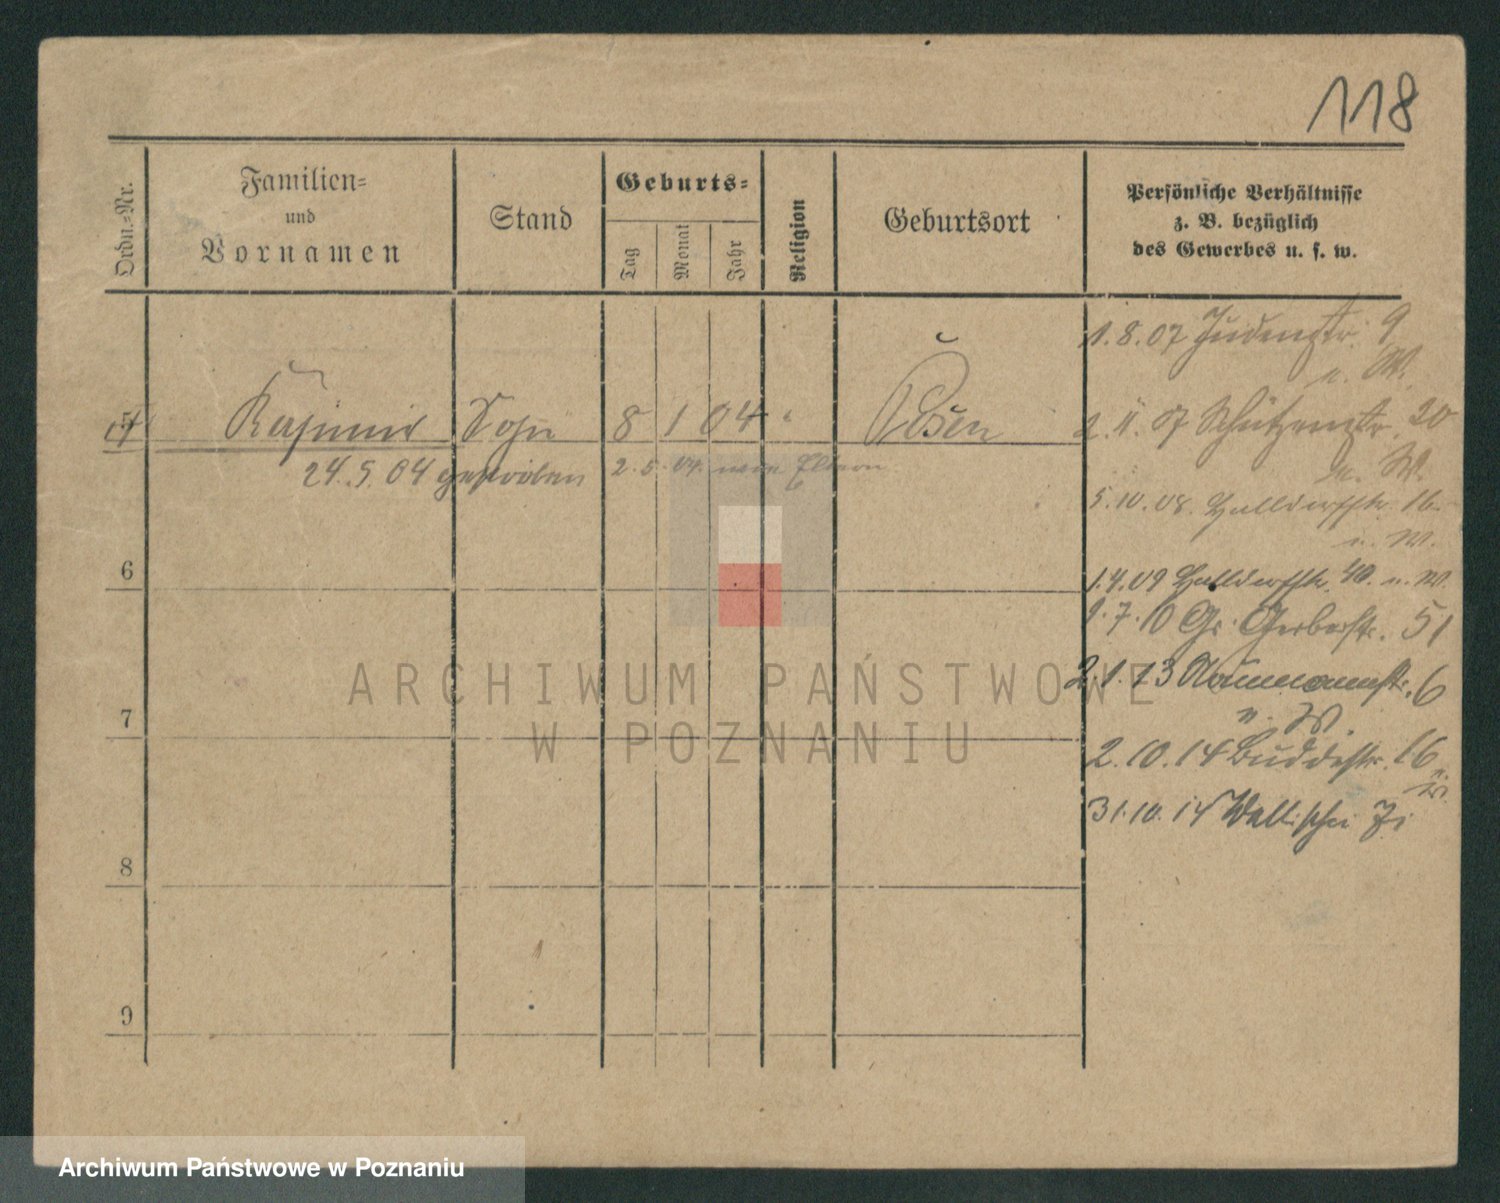 118
Ordn.-Nr.
Familien-
und
Vornamen
Stand
Geburts-
Tag
Monat
Jahr
Religion
Geburtsort
Persönliche Verhältnisse
z. B. bezüglich
des Gewerbes u. s. w.
Kasimir Sohn 8 1 04 " Posen
24.5.04 gestorben 2.5.04 Eltern
6
7
8
9
1.8.07 Judenstr. 9
u. W.
2.11.07 Schützenstr. 20
u. W.
5.10.08 Halldorfstr. 16
u. W.
1.4.09 Halldorfstr. 40. u. W.
9.7.10 Gr. Gerberstr. 51
2.1.13 Naumannstr. 6
u. W.
2.10.14 Buddestr. 16
u. W.
31.10.14 Wallischei
ARCHIWUM PAŃSTWOWE
W POZNANIU
Archiwum Państwowe w Poznaniu